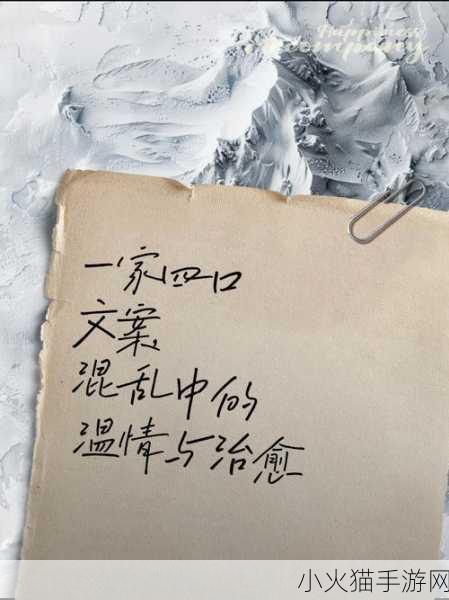 Happiness
Accompany
一家四口
文案
混乱中的
温情与治愈
小火猫手游网